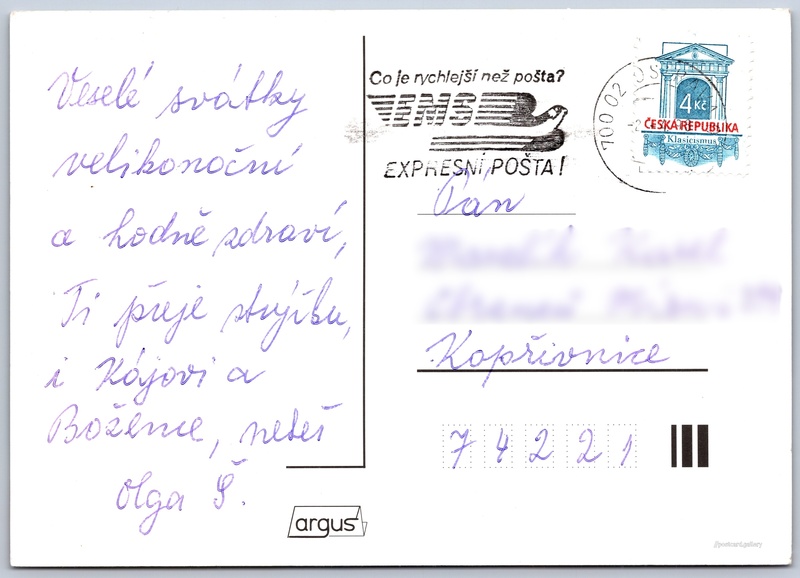 Veselé svátky
velikonoční
a hodně zdraví,
Ti přeje strýčku,
i Kájovi a
Božence, neteř
Olga Š.
Co je rychlejší než pošta?
EMS
EXPRESNÍ POŠTA!
700 02
4 Kč
ČESKÁ REPUBLIKA
Klasicismus
Pan
Kopřivnice
74221
argus
//postcard.gallery